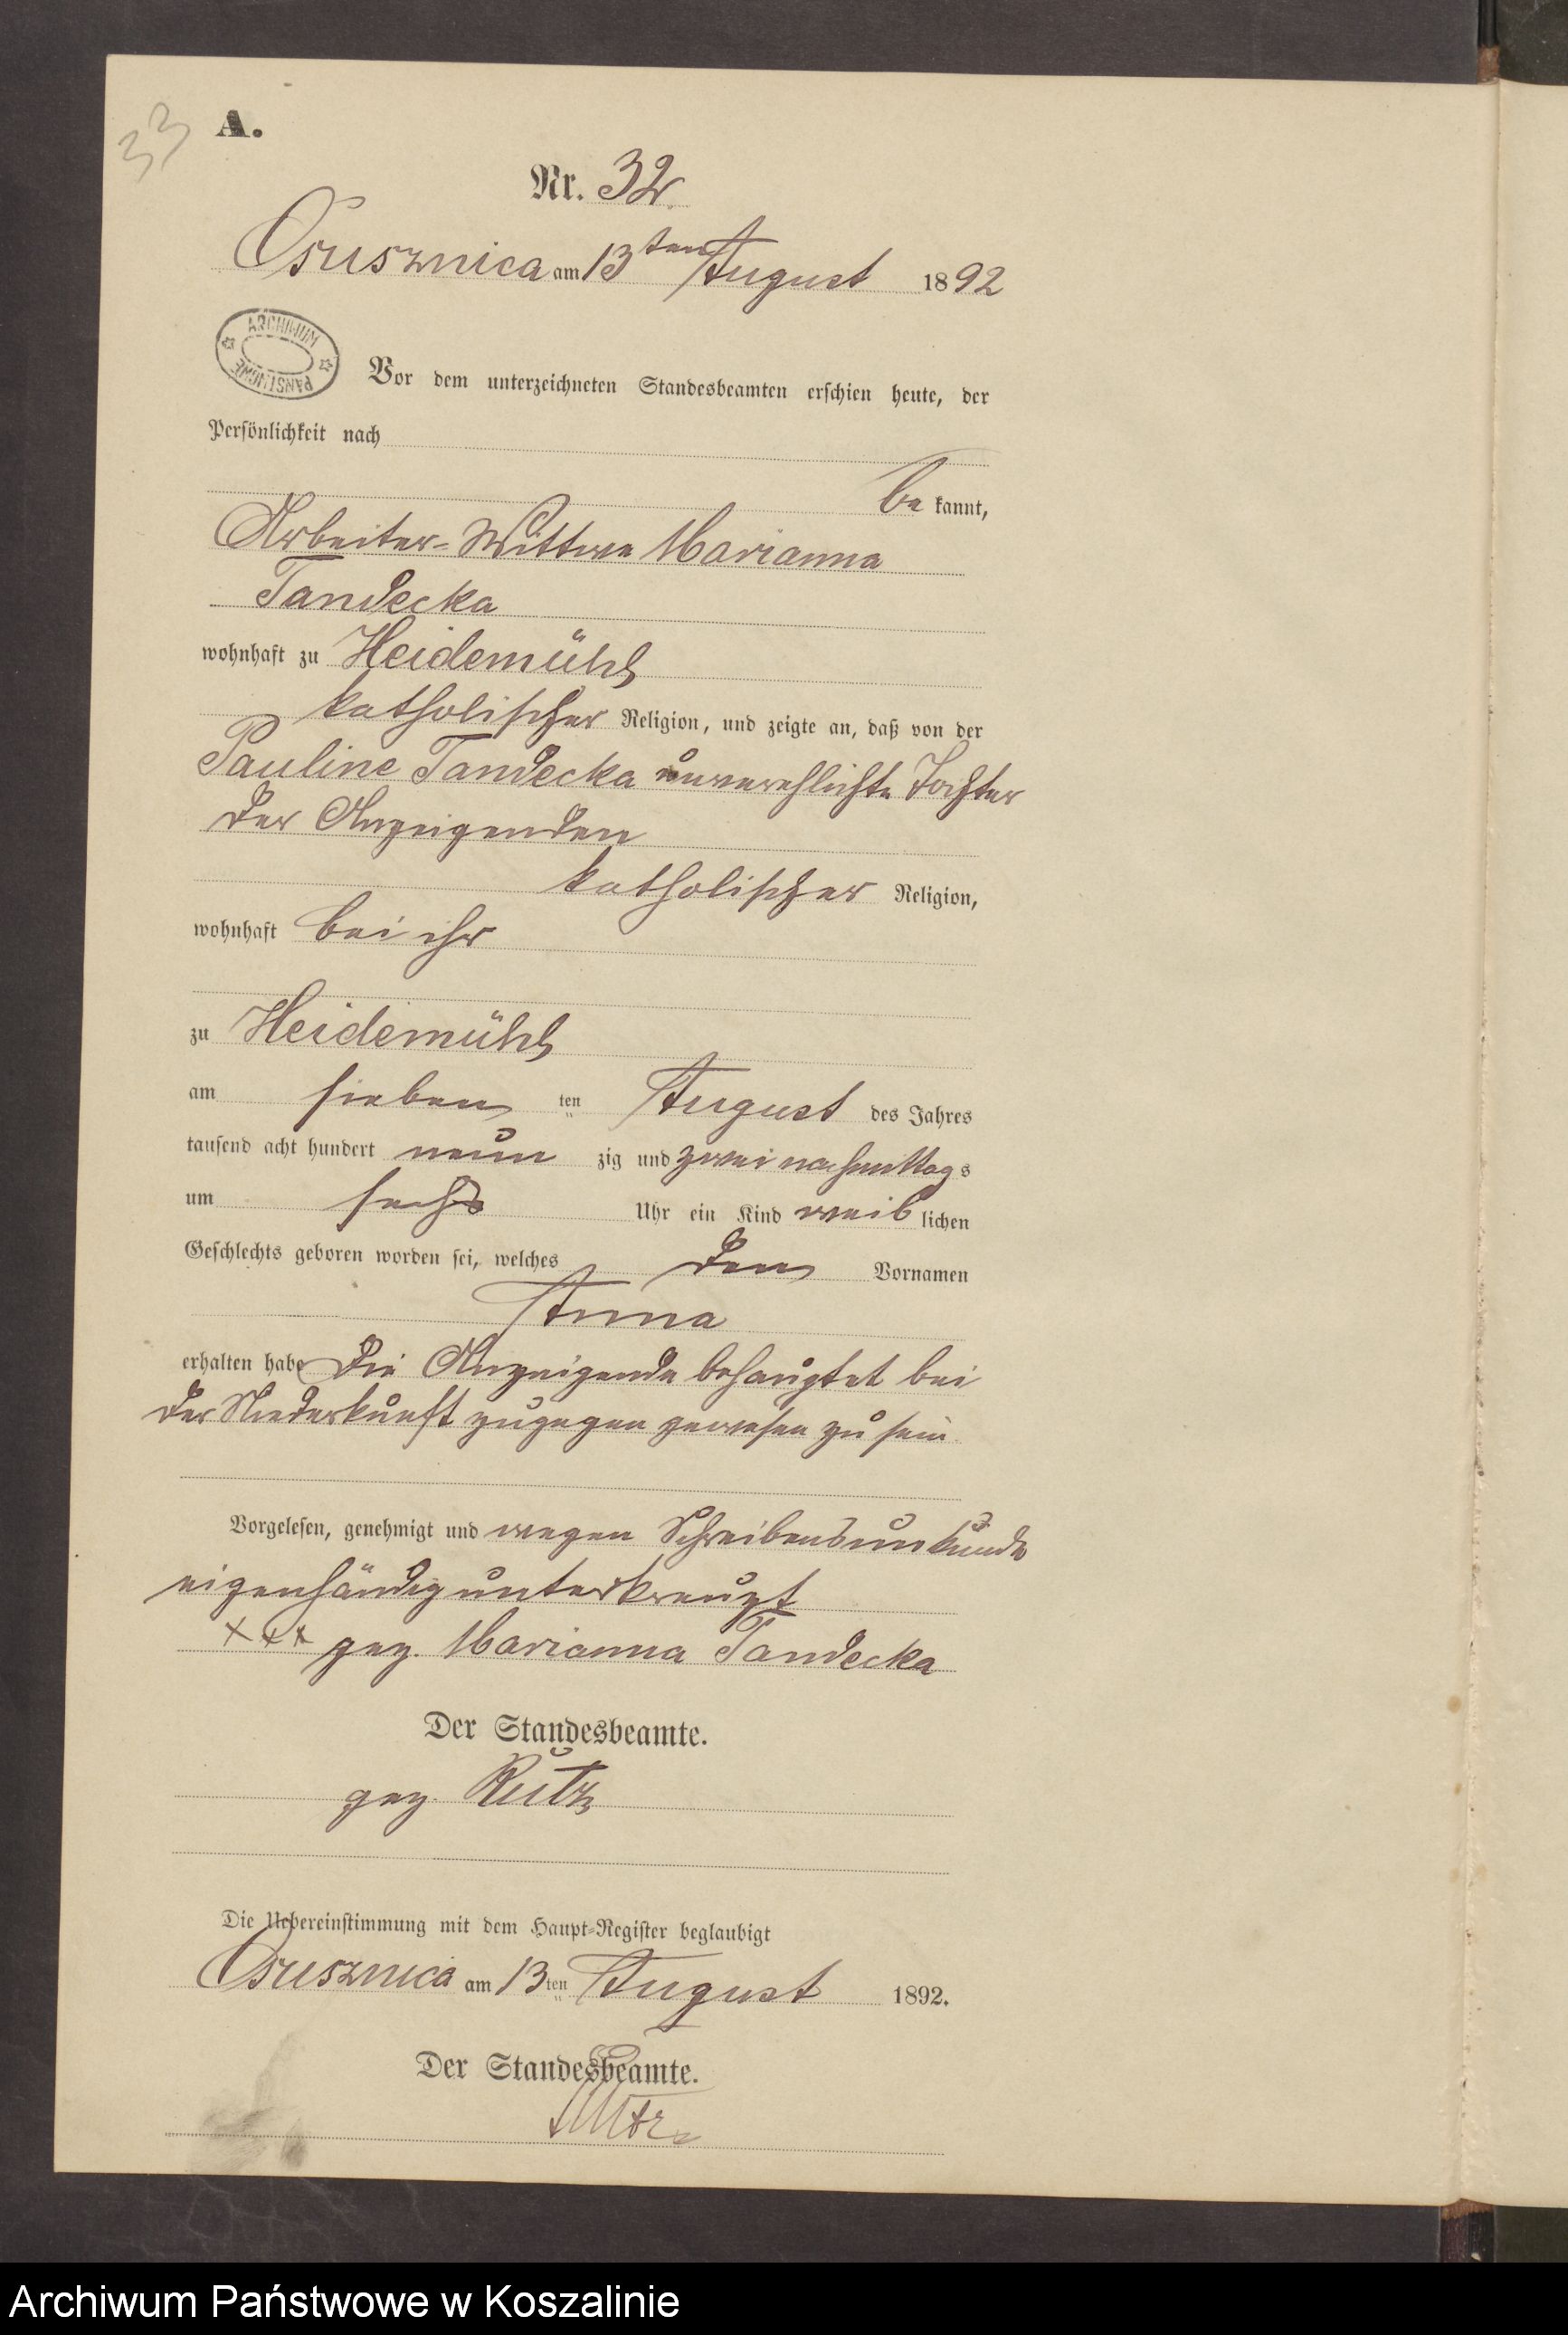 33
A.
Nr. 32.
Osusznica am 13ten August 1892
ARCHIWUM
PAŃSTWOWE
Vor dem unterzeichneten Standesbeamten erschien heute, der
Persönlichkeit nach
be kannt,
Arbeiter-Wittwe Marianna
Tandecka
wohnhaft zu Heidemühl
katholischer Religion, und zeigte an, daß von der
Pauline Tandecka unverehlichte Tochter
der Anzeigenden
katholischer Religion,
wohnhaft bei ihr
zu Heidemühl
am sieben ten August des Jahres
tausend acht hundert neun zig und zwei nachmittags
um sechs Uhr ein Kind weib lichen
Geschlechts geboren worden sei, welches den Vornamen
Anna
erhalten habe Die Anzeigende behauptet bei
der Niederkunft zugegen gewesen zu sein
Vorgelesen, genehmigt und wegen Schreibensunkunde
eigenhändig unterkreuzt
+++ gez. Marianna Tandecka
Der Standesbeamte.
gez. Rutz
Die Uebereinstimmung mit dem Haupt-Register beglaubigt
Osusznica am 13 ten August 1892.
Der Standesbeamte.
Rutz
Archiwum Państwowe w Koszalinie